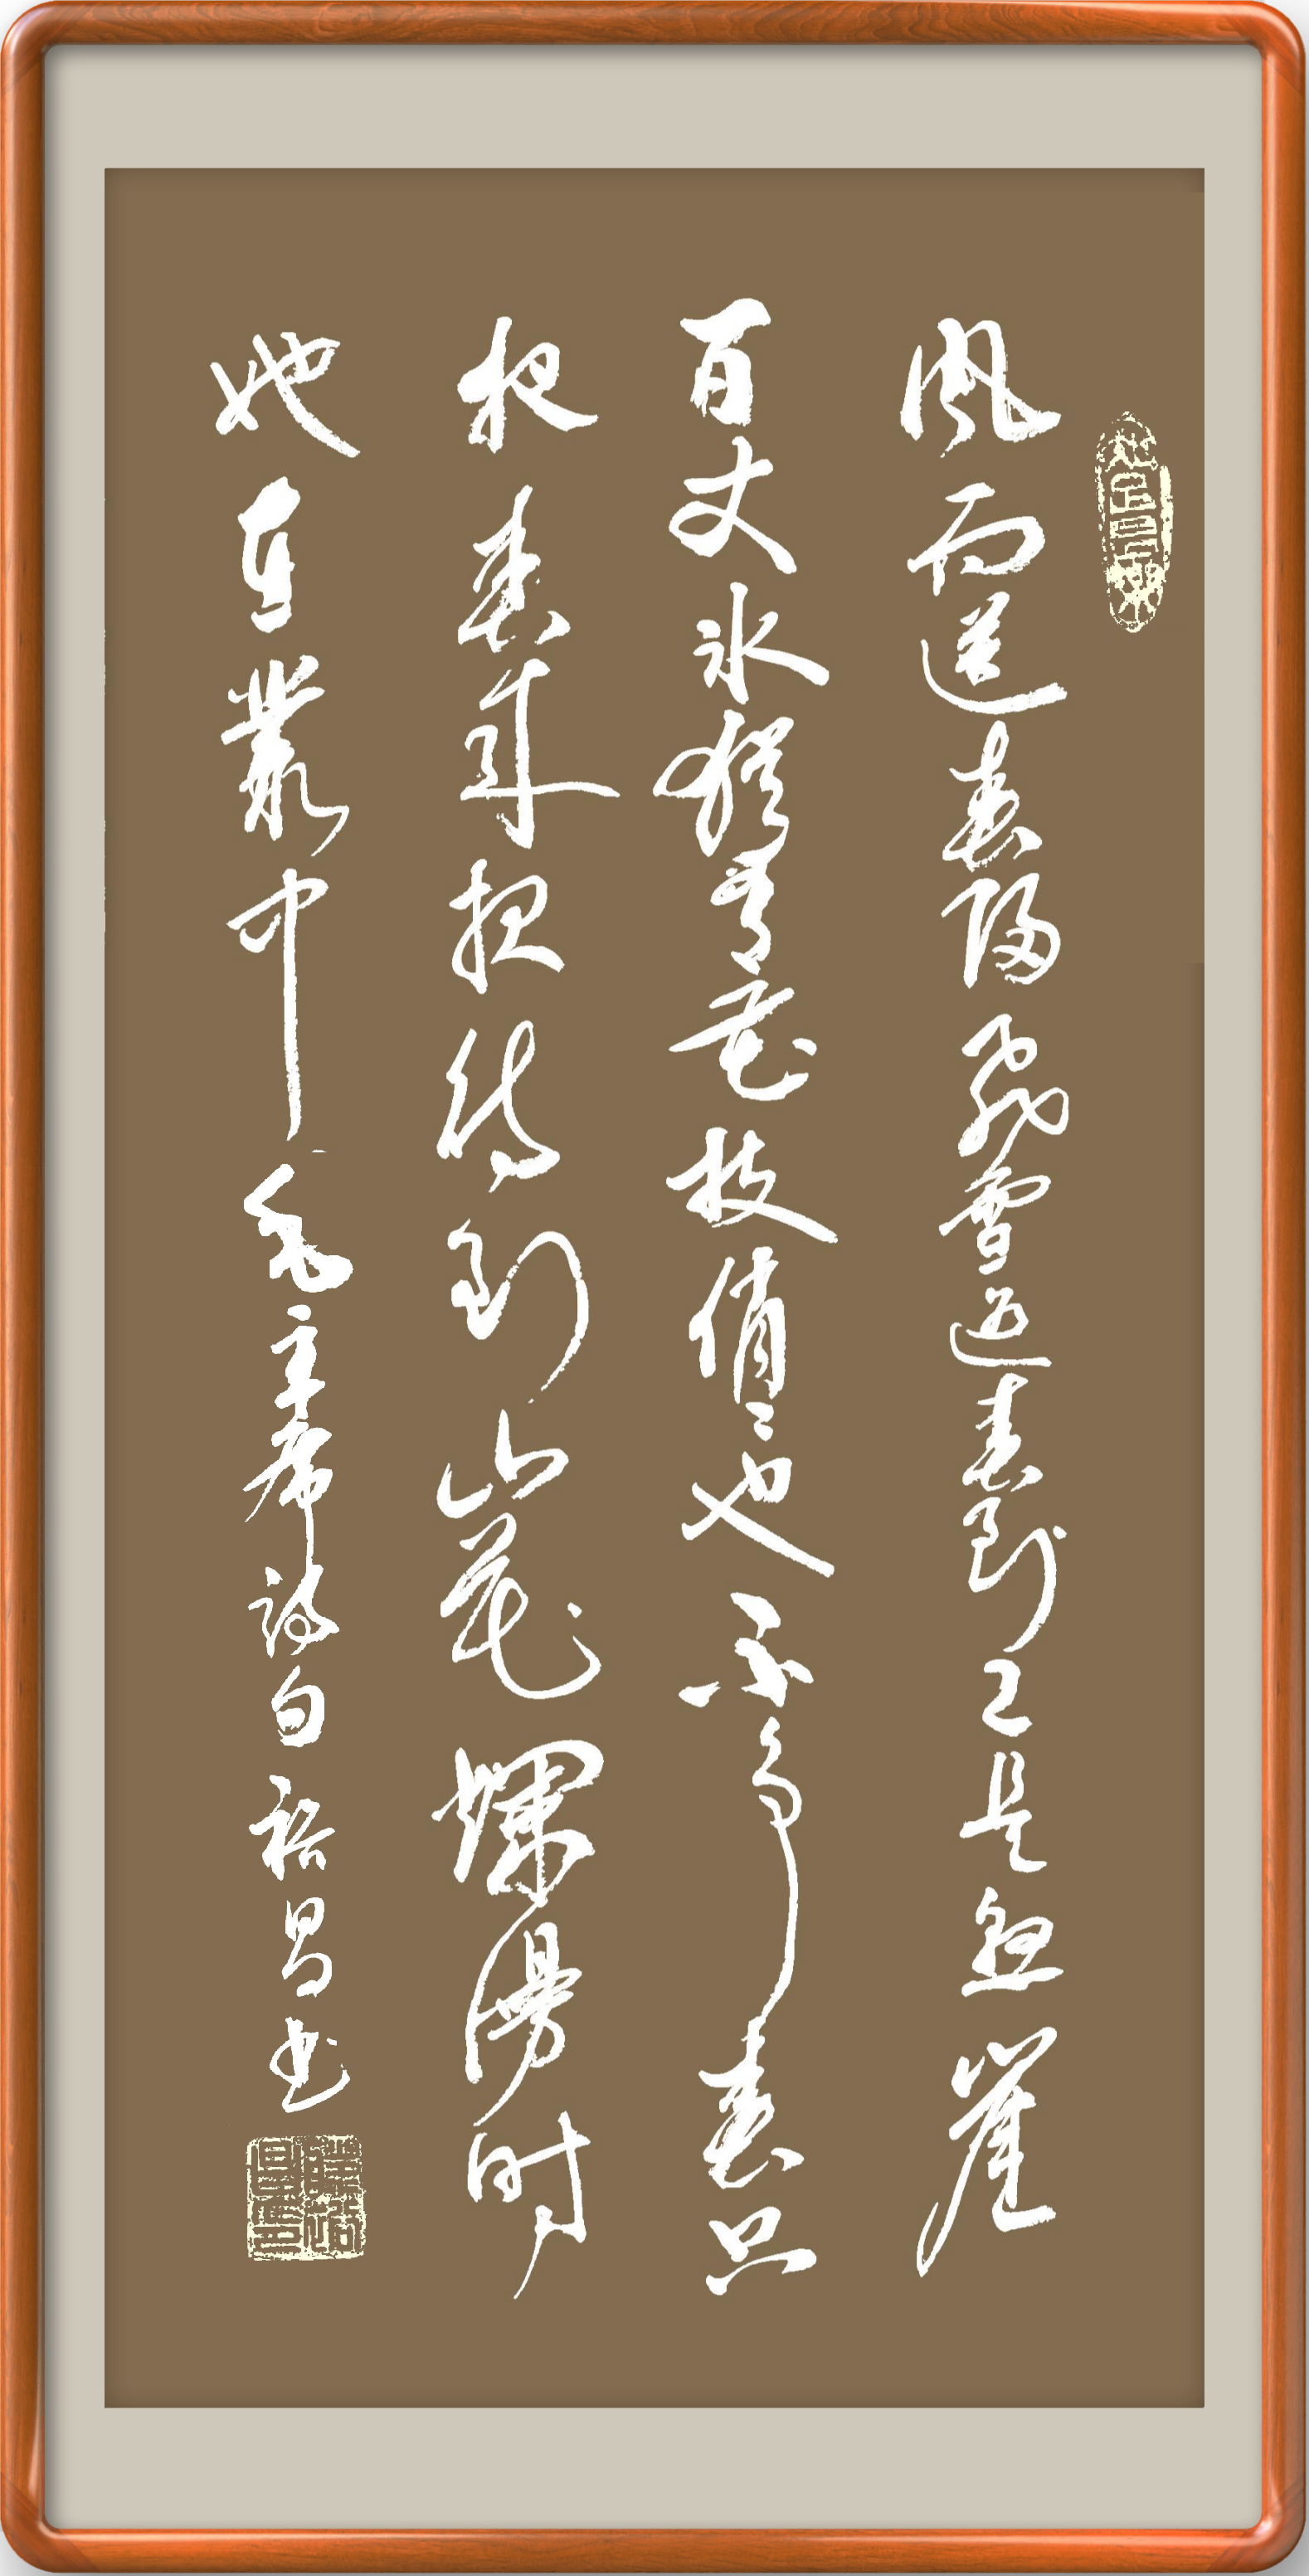 风雨送春归飞雪迎春到已是悬崖
百丈冰猶有花枝俏〻也不争春只
报春来报待到山花爛漫时
她在叢中毛主席诗句裕昌书